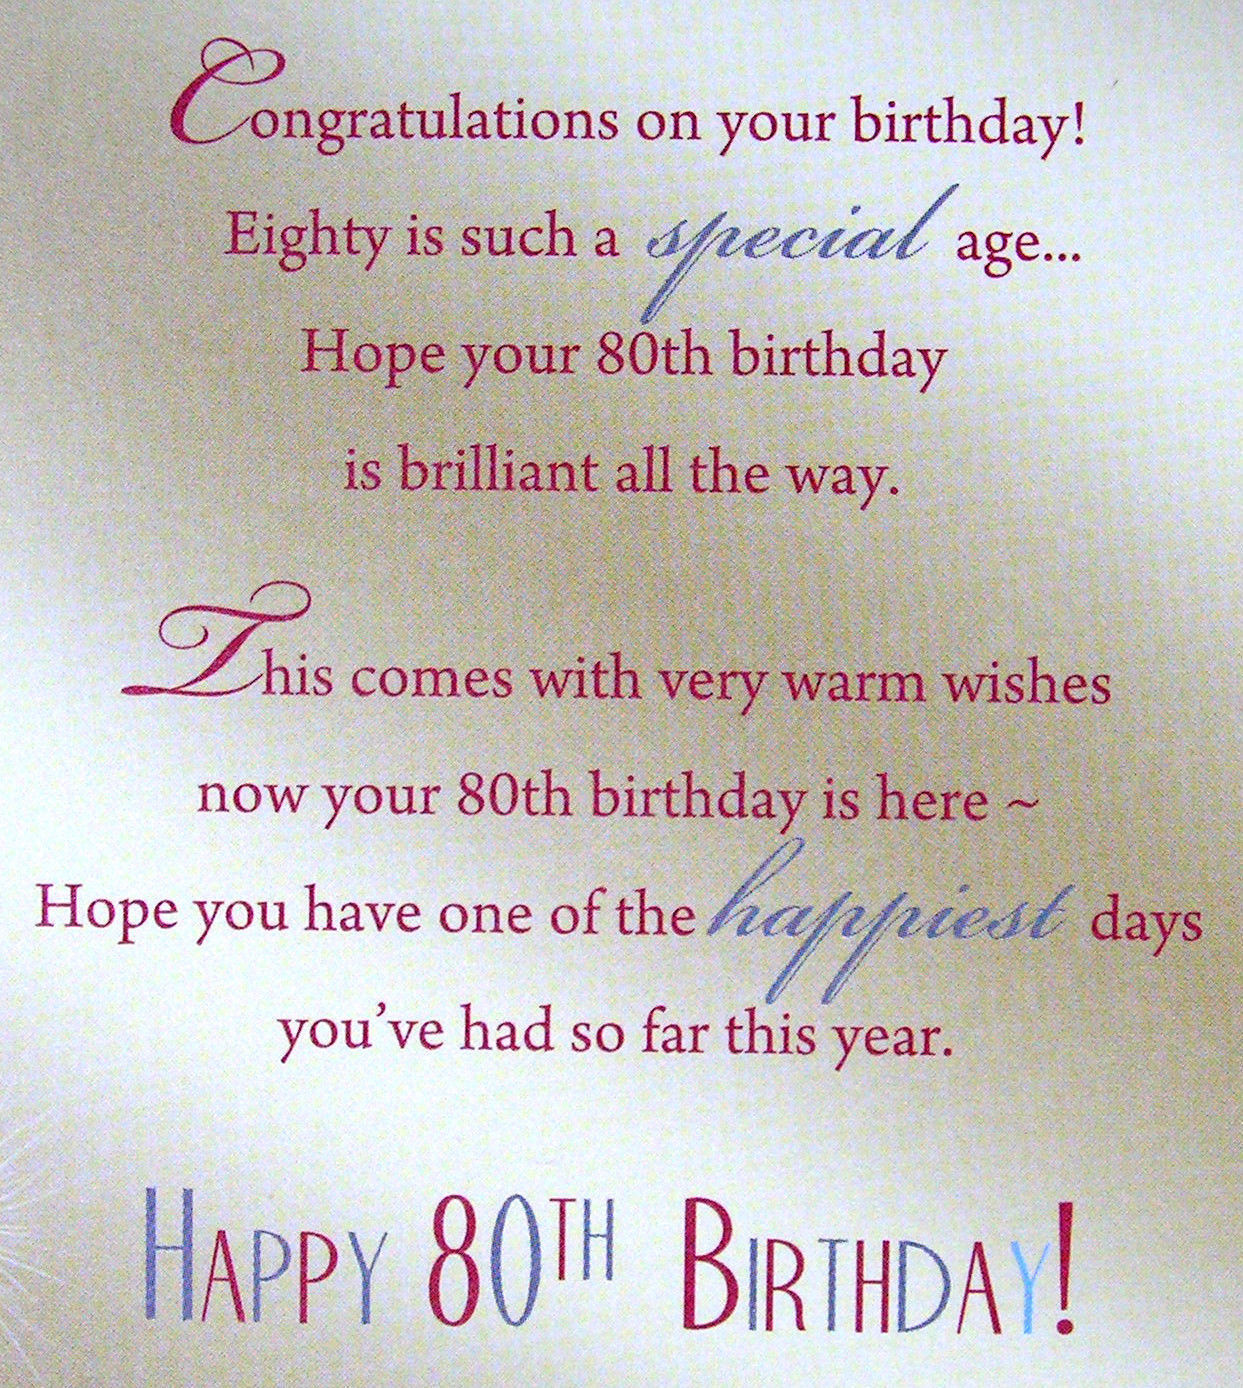 Congratulations on your birthday!
Eighty is such a special age...
Hope your 80th birthday
is brilliant all the way.
This comes with very warm wishes
now your 80th birthday is here ~
Hope you have one of the happiest days
you've had so far this year.
HAPPY 80TH BIRTHDAY!